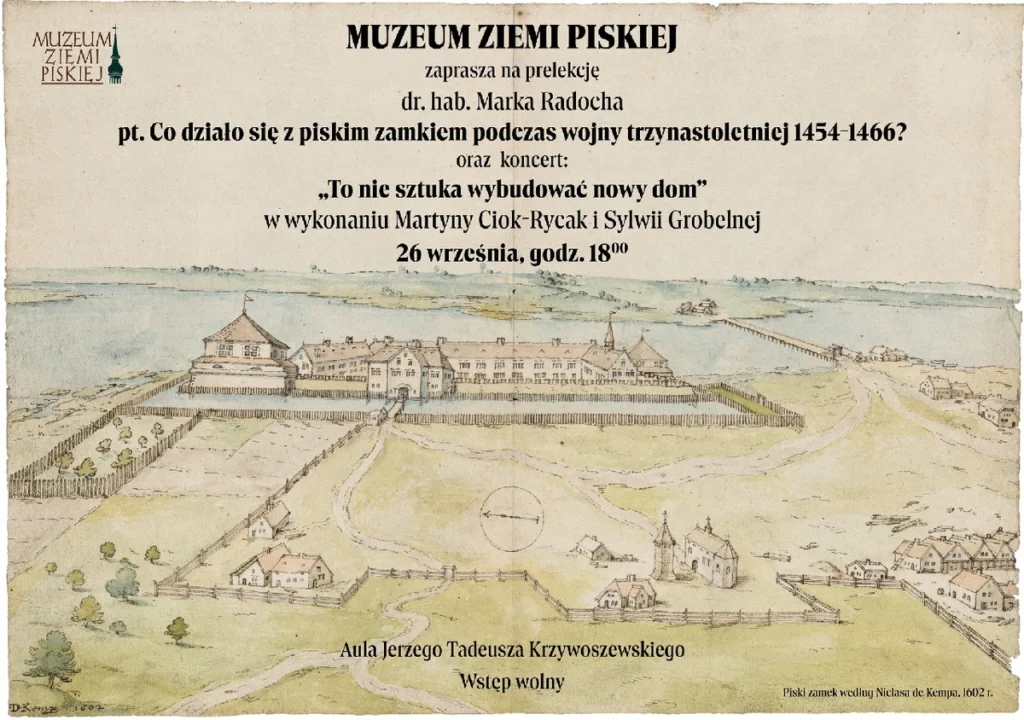 MUZEUM
ZIEMI
PISKIEJ
MUZEUM ZIEMI PISKIEJ
zaprasza na prelekcję
dr. hab. Marka Radocha
pt. Co działo się z piskim zamkiem podczas wojny trzynastoletniej 1454-1466?
oraz koncert:
„To nie sztuka wybudować nowy dom”
w wykonaniu Martyny Ciok-Rycak i Sylwii Grobelnej
26 września, godz. 18⁰⁰
Aula Jerzego Tadeusza Krzywoszewskiego
Wstęp wolny
Piski zamek według Niclasa de Kempa, 1602 r.